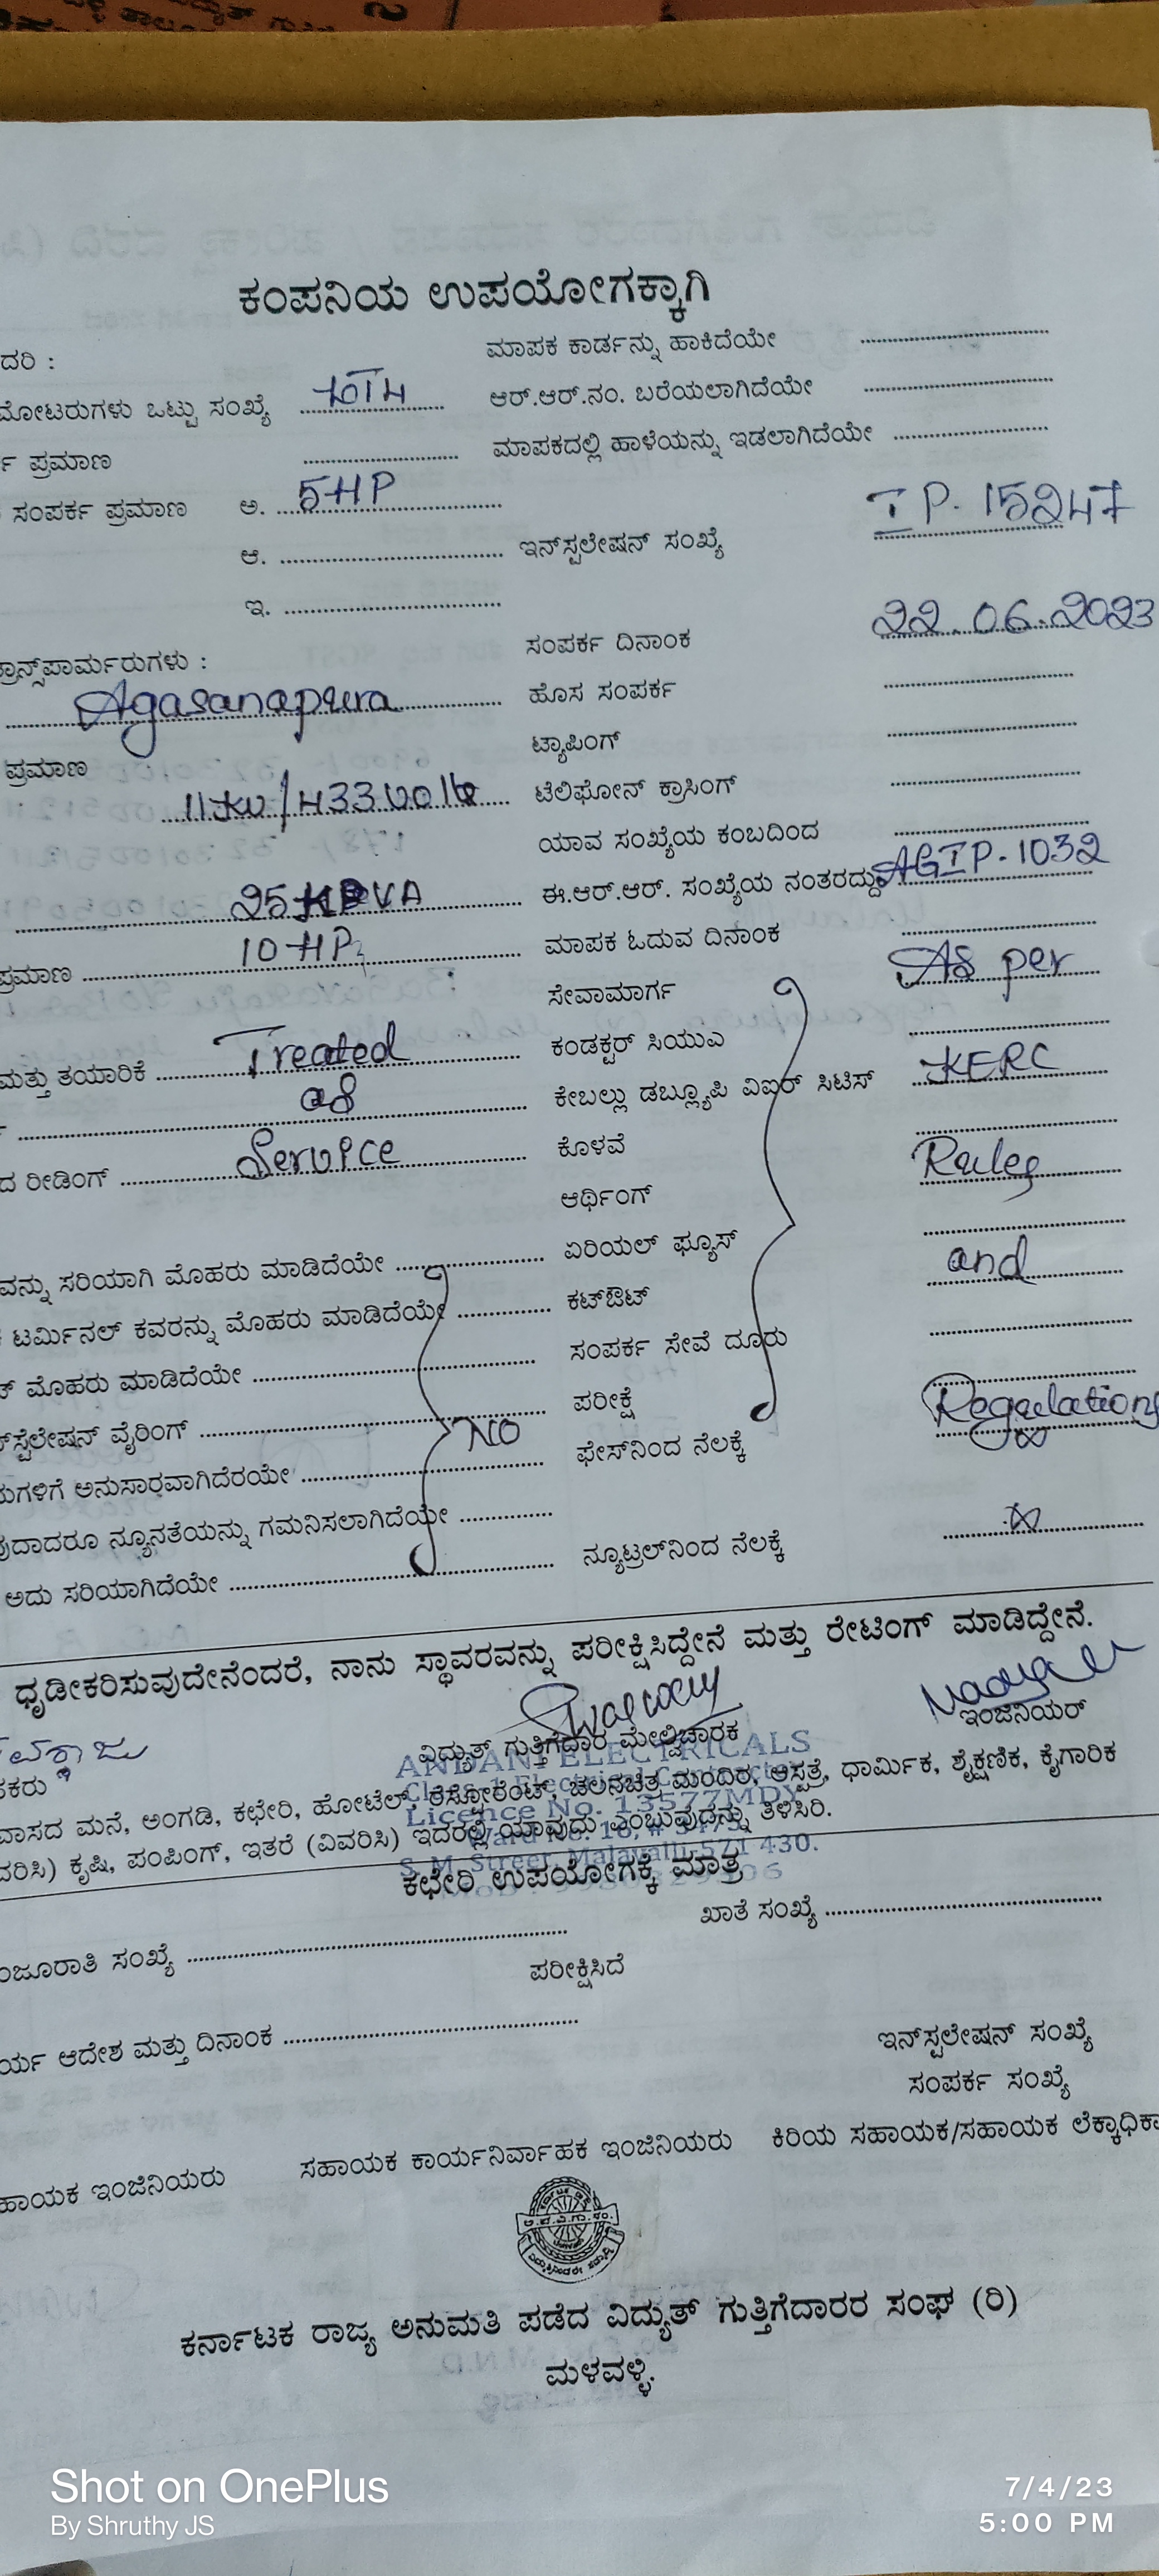 ಕಂಪನಿಯ ಉಪಯೋಗಕ್ಕಾಗಿ
ದರಿ :
ಮಾಪಕ ಕಾರ್ಡನ್ನು ಹಾಕಿದೆಯೇ
ಮೋಟರುಗಳು ಒಟ್ಟು ಸಂಖ್ಯೆ
ಆರ್.ಆರ್.ನಂ. ಬರೆಯಲಾಗಿದೆಯೇ
ಪ್ರಮಾಣ
ಮಾಪಕದಲ್ಲಿ ಹಾಳೆಯನ್ನು ಇಡಲಾಗಿದೆಯೇ
ಸಂಪರ್ಕ ಪ್ರಮಾಣ ಅ. 5HP
ಆ.
ಇನ್‌ಸ್ಟಲೇಷನ್ ಸಂಖ್ಯೆ IP. 15247
ಇ.
ಸಂಪರ್ಕ ದಿನಾಂಕ 22.06.2023
ಟ್ರಾನ್ಸ್‌ಫಾರ್ಮರುಗಳು :
Agasanapura
ಹೊಸ ಸಂಪರ್ಕ
ಪ್ರಮಾಣ
ಟ್ಯಾಪಿಂಗ್
11KV/433 Volt
ಟೆಲಿಫೋನ್ ಕ್ರಾಸಿಂಗ್
ಯಾವ ಸಂಖ್ಯೆಯ ಕಂಬದಿಂದ
25 KVA
ಈ.ಆರ್.ಆರ್. ಸಂಖ್ಯೆಯ ನಂತರದ್ದು AGIP-1032
ಪ್ರಮಾಣ 10 HP
ಮಾಪಕ ಓದುವ ದಿನಾಂಕ
ಸೇವಾಮಾರ್ಗ As per
ಮತ್ತು ತಯಾರಿಕೆ Treated
ಕಂಡಕ್ಟರ್ ಸಿಯುಎ
as
ಕೇಬಲ್ಲು ಡಬ್ಲ್ಯೂಪಿ ವಿಐರ್ ಸಿಟಿಸ್ KERC
ರೀಡಿಂಗ್ Service
ಕೊಳವೆ
ಆರ್ಥಿಂಗ್ Rules
ವನ್ನು ಸರಿಯಾಗಿ ಮೊಹರು ಮಾಡಿದೆಯೇ
ಏರಿಯಲ್ ಫ್ಯೂಸ್
ಟರ್ಮಿನಲ್ ಕವರನ್ನು ಮೊಹರು ಮಾಡಿದೆಯೇ
ಕಟ್‌ಔಟ್ and
ಮೊಹರು ಮಾಡಿದೆಯೇ
ಸಂಪರ್ಕ ಸೇವೆ ದೂರು
ವೈರಿಂಗ್ NO
ಪರೀಕ್ಷೆ
ಅನುಸಾರವಾಗಿದೆರಯೇ
ಫೇಸ್‌ನಿಂದ ನೆಲಕ್ಕೆ Regulations
ನ್ಯೂನತೆಯನ್ನು ಗಮನಿಸಲಾಗಿದೆಯೇ
ಅದು ಸರಿಯಾಗಿದೆಯೇ
ನ್ಯೂಟ್ರಲ್‌ನಿಂದ ನೆಲಕ್ಕೆ
ಧೃಡೀಕರಿಸುವುದೇನೆಂದರೆ, ನಾನು ಸ್ಥಾವರವನ್ನು ಪರೀಕ್ಷಿಸಿದ್ದೇನೆ ಮತ್ತು ರೇಟಿಂಗ್ ಮಾಡಿದ್ದೇನೆ.
ವಿದ್ಯುತ್ ಗುತ್ತಿಗೆದಾರ ಮೇಲ್ವಿಚಾರಕ
ಇಂಜಿನಿಯರ್
ELECTRICALS
Licence No. 13577MDY
S. M. Street, Malavalli-571 430.
ವಾಸದ ಮನೆ, ಅಂಗಡಿ, ಕಛೇರಿ, ಹೋಟೆಲ್, ರೆಸ್ಟೋರೆಂಟ್, ಚಲನಚಿತ್ರ ಮಂದಿರ, ಆಸ್ಪತ್ರೆ, ಧಾರ್ಮಿಕ, ಶೈಕ್ಷಣಿಕ, ಕೈಗಾರಿಕ
ಕೃಷಿ, ಪಂಪಿಂಗ್, ಇತರೆ (ವಿವರಿಸಿ) ಇದರಲ್ಲಿ ಯಾವುದು ಎಂಬುವುದನ್ನು ತಿಳಿಸಿರಿ.
ಕಛೇರಿ ಉಪಯೋಗಕ್ಕೆ ಮಾತ್ರ
ಖಾತೆ ಸಂಖ್ಯೆ
ಂಜೂರಾತಿ ಸಂಖ್ಯೆ
ಪರೀಕ್ಷಿಸಿದೆ
ರ್ಯ ಆದೇಶ ಮತ್ತು ದಿನಾಂಕ
ಇನ್‌ಸ್ಟಲೇಷನ್ ಸಂಖ್ಯೆ
ಸಂಪರ್ಕ ಸಂಖ್ಯೆ
ಹಾಯಕ ಇಂಜಿನಿಯರು ಸಹಾಯಕ ಕಾರ್ಯನಿರ್ವಾಹಕ ಇಂಜಿನಿಯರು ಕಿರಿಯ ಸಹಾಯಕ/ಸಹಾಯಕ ಲೆಕ್ಕಾಧಿಕಾ
ಕರ್ನಾಟಕ ರಾಜ್ಯ ಅನುಮತಿ ಪಡೆದ ವಿದ್ಯುತ್ ಗುತ್ತಿಗೆದಾರರ ಸಂಘ (ರಿ)
ಮಳವಳ್ಳಿ.
Shot on OnePlus
By Shruthy JS
7/4/23
5:00 PM